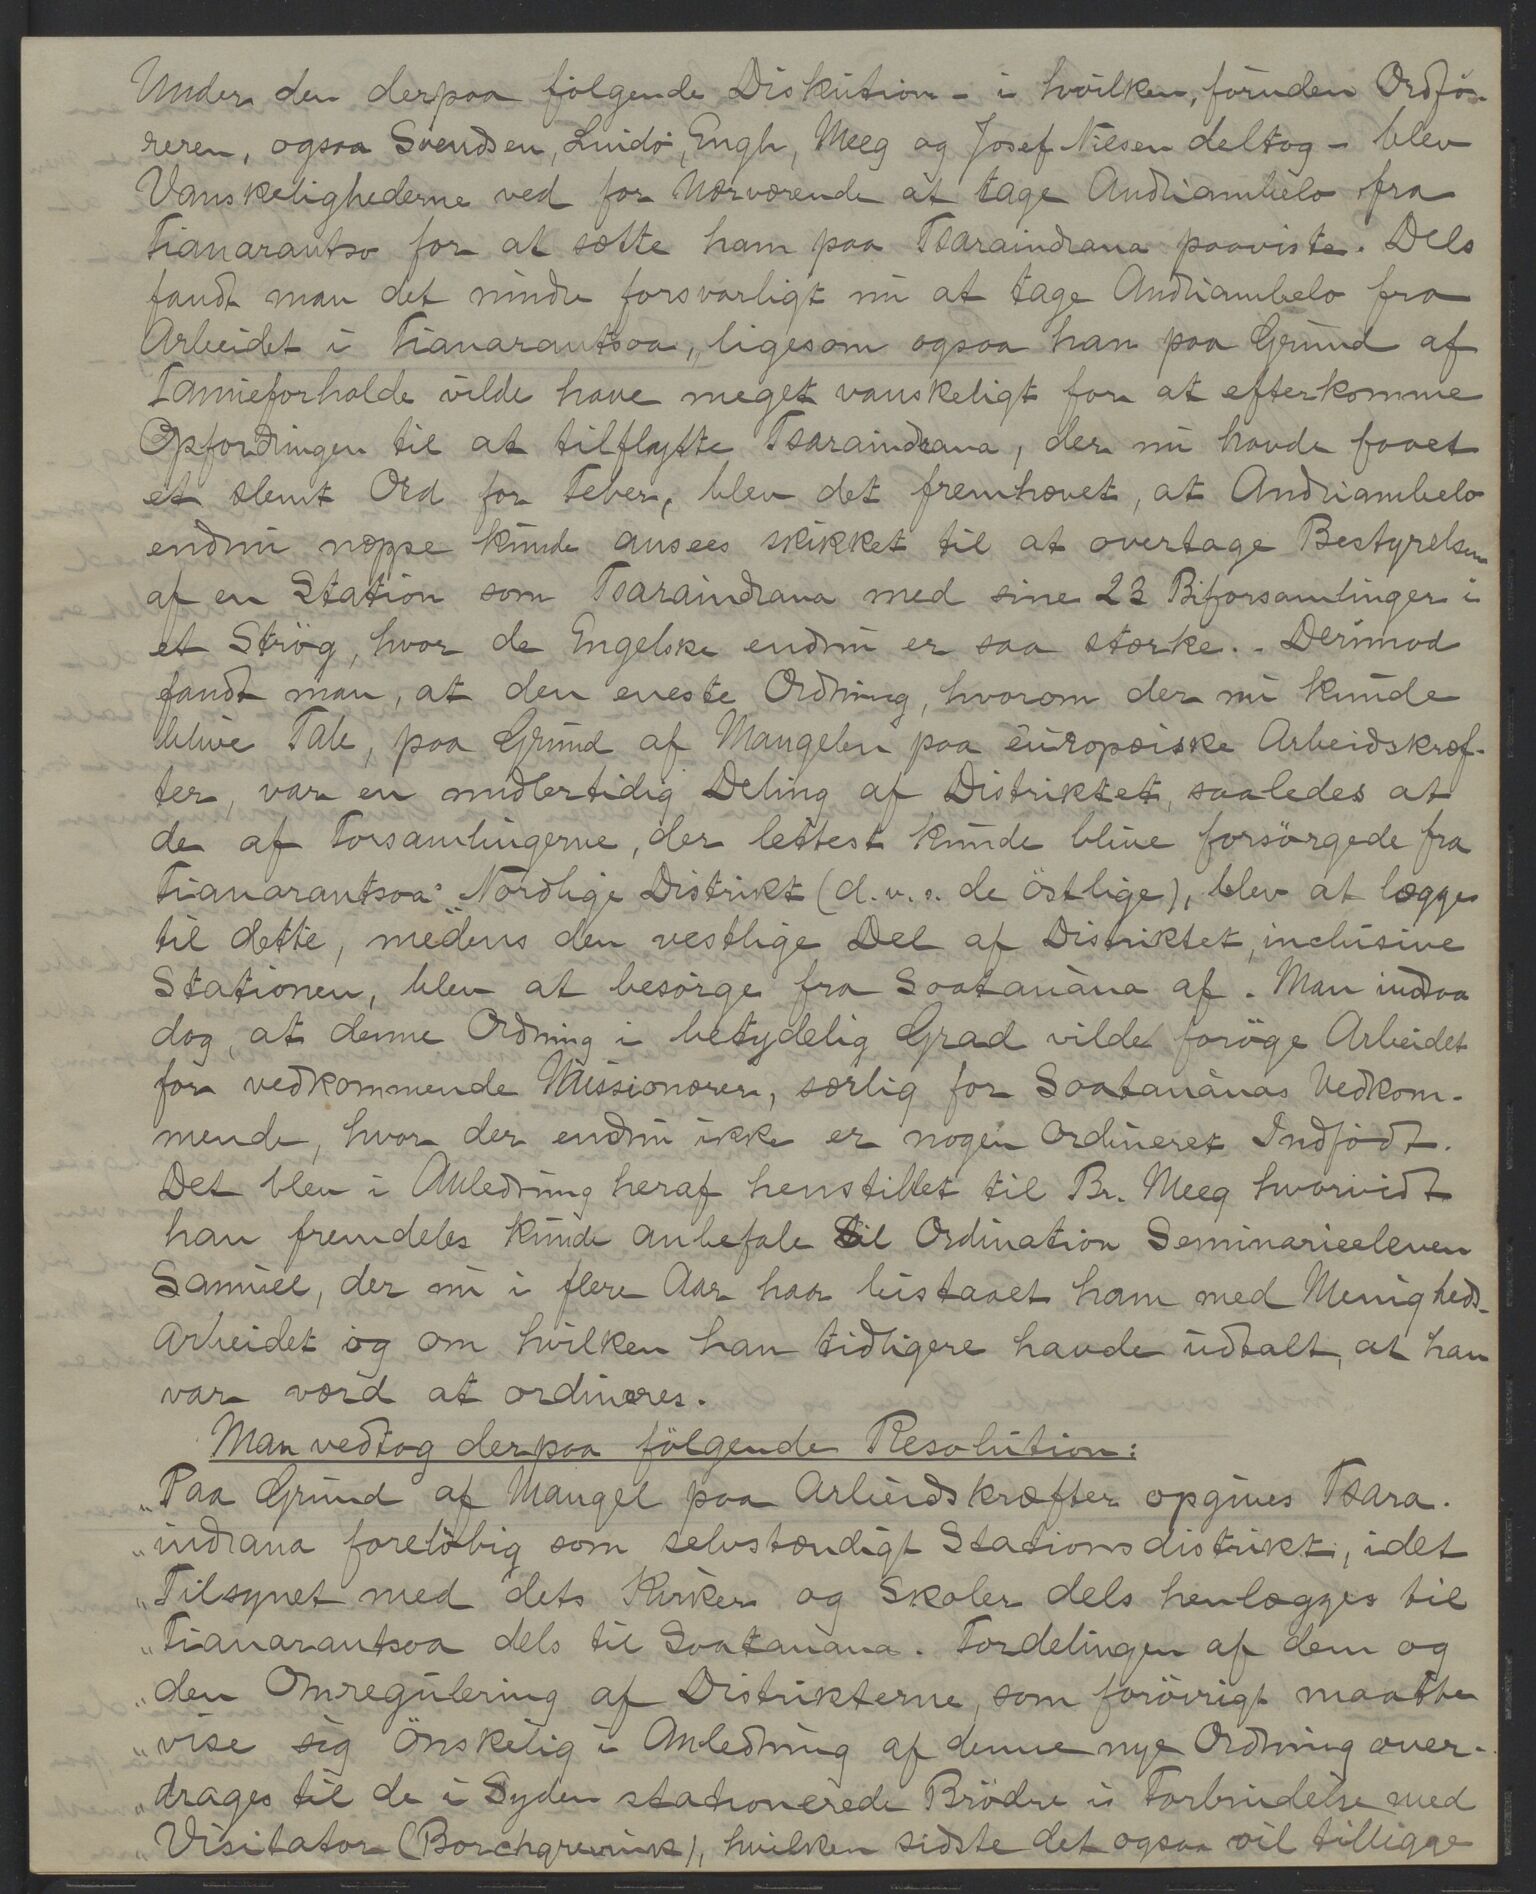 Under den derpaa følgende Diskution - i hvilken, foruden Ordfö-
reren, ogsaa Svendsen, Lindö, Engh, Meeg og Josef Nilsen deltog - blev
Vanskelighederne ved for Nærværende at tage Andriambelo fra
Fianarantso for at sætte ham paa Tsaraindrana paaviste. Dels
fandt man det mindre forsvarligt nu at tage Andriambelo fra
Arbeidet i Fianarantsoa, ligesom ogsaa han paa Grund af
Familieforholde vilde have meget vanskeligt for at efterkomme
Opfordringen til at tilflytte Tsaraindrana, der nu havde faaet
et slemt Ord for Feber, blev det fremhævet, at Andriambelo
endnu neppe kunde ansees skikket til at overtage Bestyrelsen
af en Station som Tsaraindrana med sine 22 Biforsamlinger i
et Strög, hvor de Engelske endnu er saa stærke. - Derimod
fandt man, at den eneste Ordning, hvorom der nu kunde
blive Tale, paa Grund af Mangelen paa europæiske Arbeidskræf-
ter, var en midlertidig Deling af Distriktet, saaledes at
de af Forsamlingerne, der lettest kunde blive forsörgede fra
Fianarantsoa's Nordlige Distrikt (d. v. s. de östlige), blev at lægges
til dette, medens den vestlige Del af Distriktet, inclusive
Stationen, blev at besörge fra Soatanàna af. Man indsaa
dog, at denne Ordning i betydelig Grad vilde foröge Arbeidet
for vedkommende Missionærer, særlig for Soatanànas Vedkom-
mende, hvor der endnu ikke er nogen ordineret Indfödt.
Det blev i Anledning heraf henstillet til Br. Meeg hvorvidt
han fremdeles kunde anbefale til Ordination Seminarieeleven
Samuel, der nu i flere Aar har bistaaet ham med Menigheds-
arbeidet og om hvilken han tidligere havde udtalt, at han
var værd at ordineres.
Man vedtog derpaa fölgende Resolution:
"Paa Grund af Mangel paa Arbeidskræfter opgives Tsara-
"indrana forelöbig som selvstændigt Stationsdistrikt, idet
"Tilsynet med dets Kirker og Skoler dels henlægges til
"Fianarantsoa dels til Soatanana. Fordelingen af dem og
"den Omregulering af Distrikterne, som forövrigt maatte
"vise sig önskelig i Anledning af denne nye Ordning over-
"drages til de i Syden stationerede Brödre i Forbindelse med
"Visitator (Borchgrevink), hvilken sidste det ogsaa vil tilligge